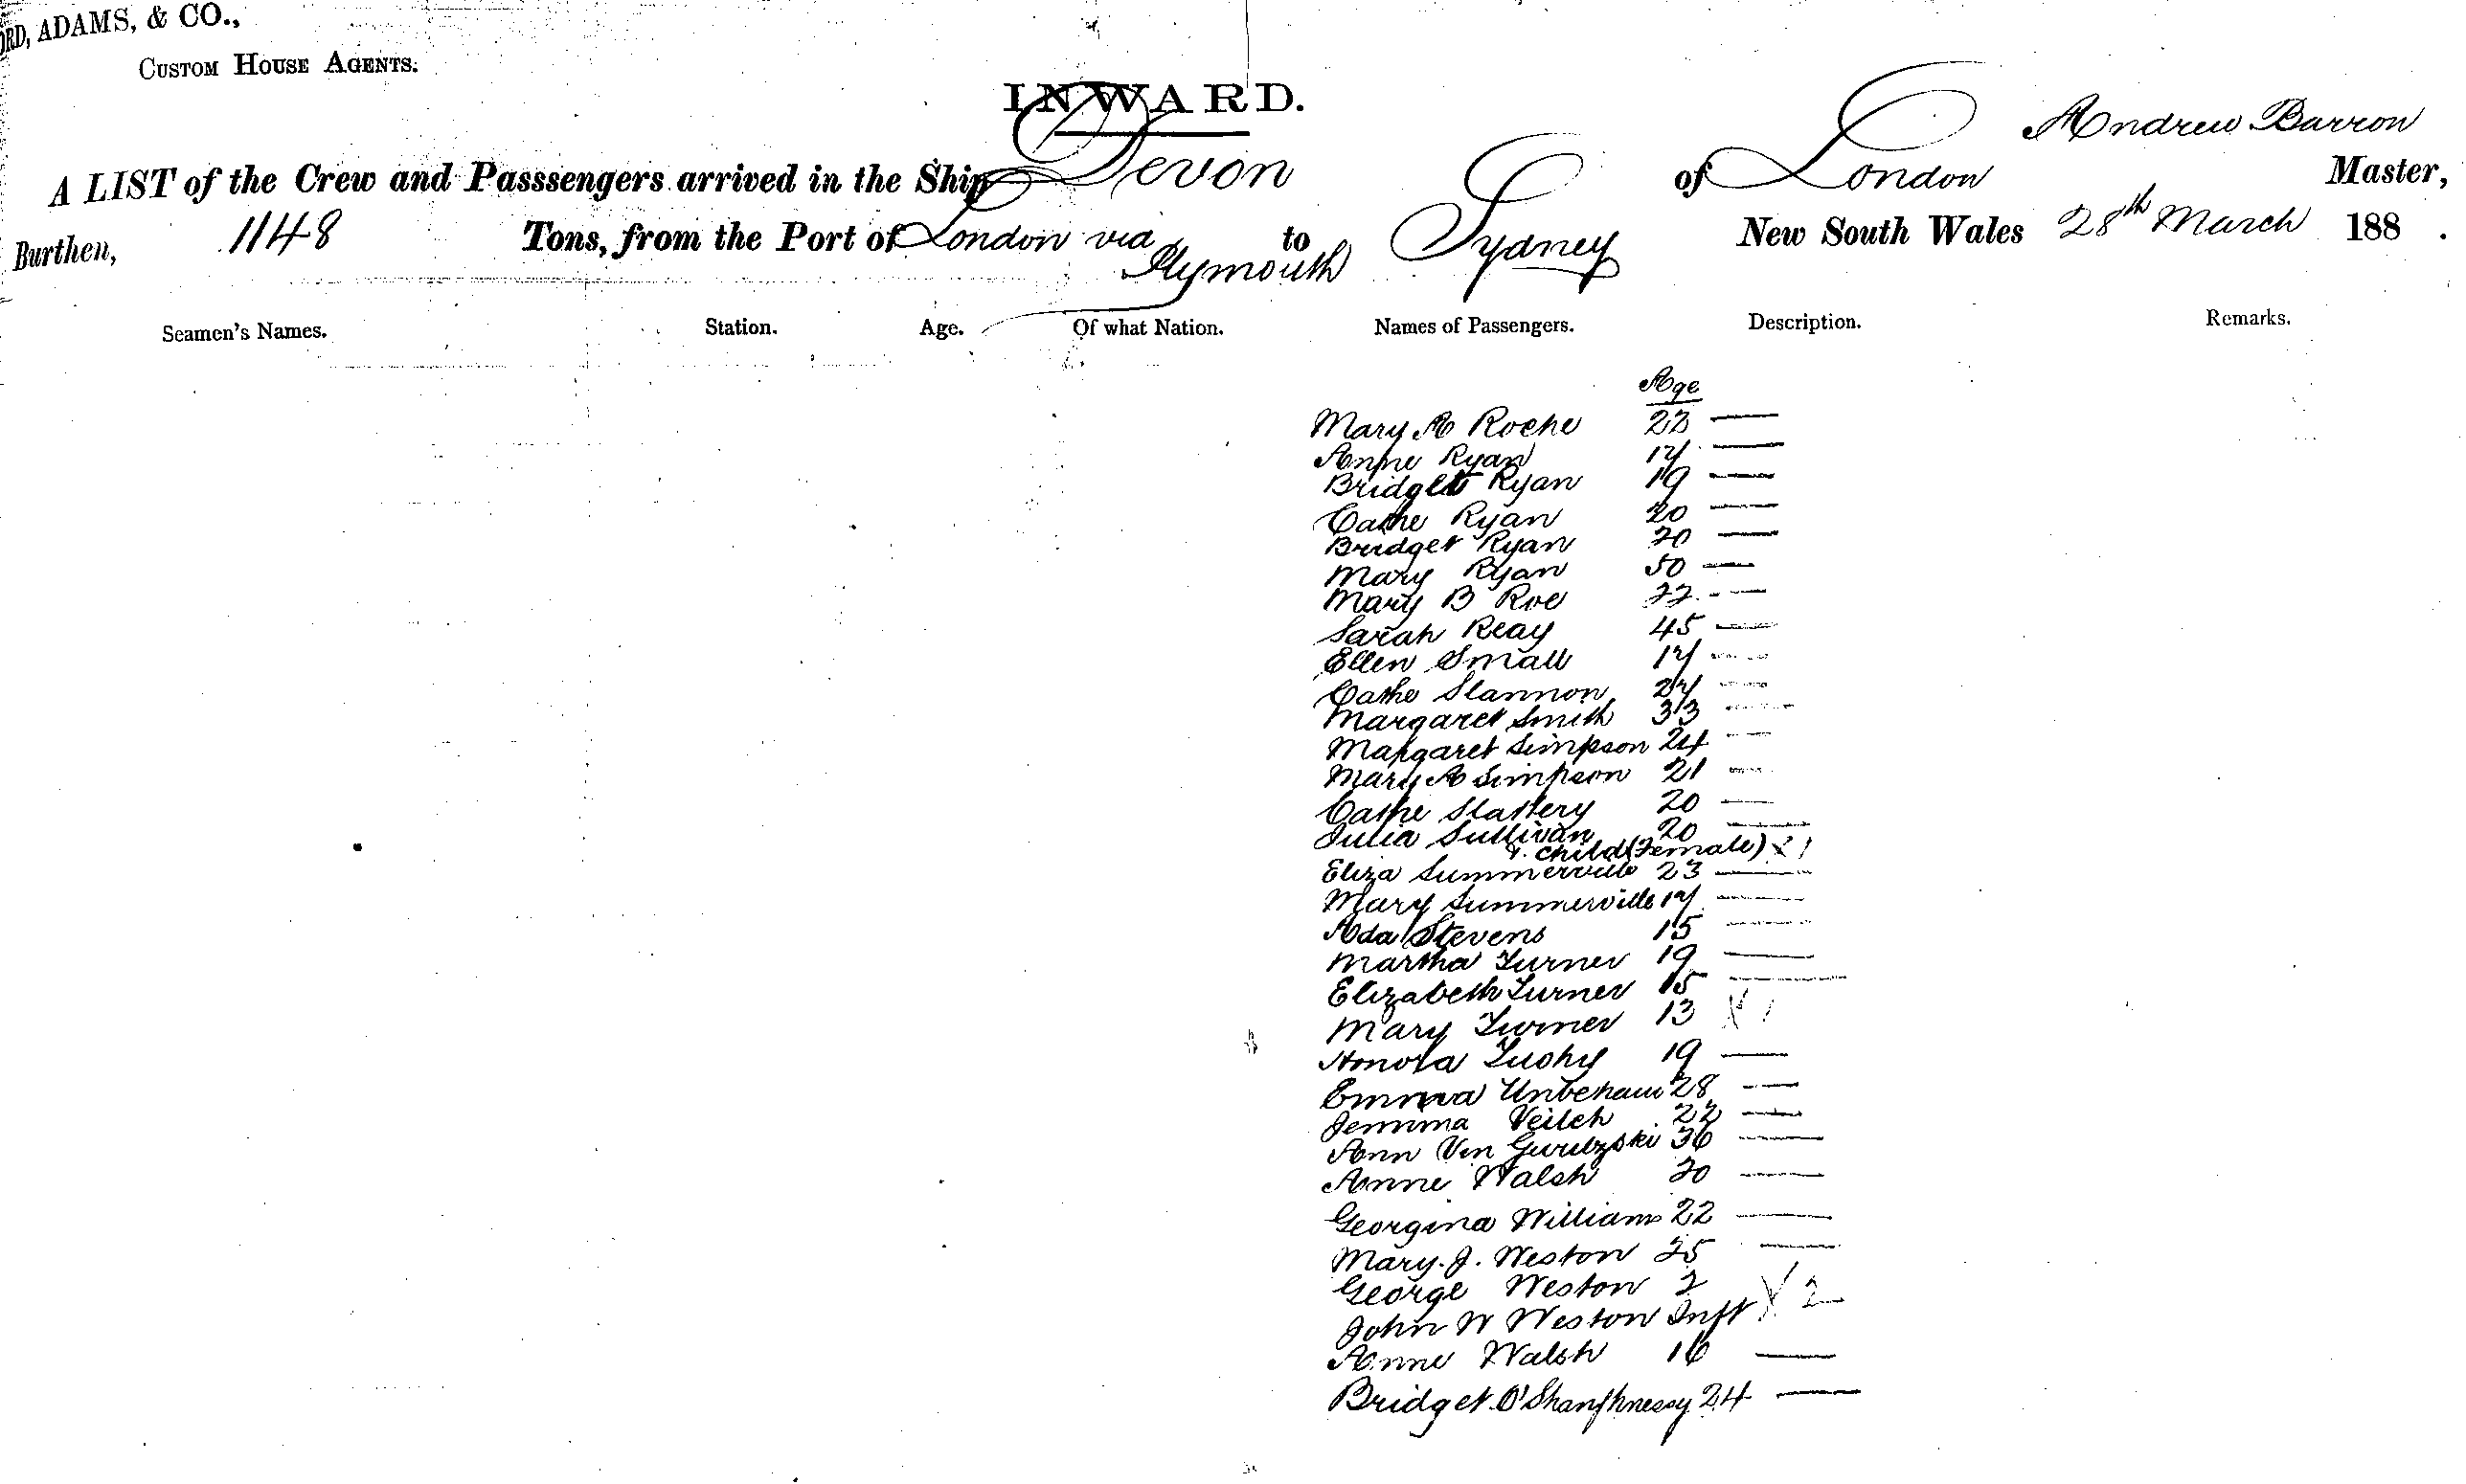 ORD, ADAMS, & CO.,
CUSTOM HOUSE AGENTS.
INWARD.
A LIST of the Crew and Passsengers arrived in the Ship Devon of London Andrew Barron Master,
Burthen, 1148 Tons, from the Port of London via Plymouth to Sydney New South Wales 28th March 188 .
Seamen's Names. Station. Age. Of what Nation. Names of Passengers. Description. Remarks.
Age
Mary A Roche 23 —
Anne Ryan 17 —
Bridget Ryan 19 —
Cathe Ryan 20 —
Bridget Ryan 20 —
Mary Ryan 50 —
Mary B Roe 22 —
Sarah Reay 45 —
Ellen Small 17 —
Cathe Slannon 27 —
Margaret Smith 33 —
Margaret Simpson 24 —
Mary A Simpson 21 —
Cathe Slattery 20 —
Julia Sullivan 20 —
& child (Female) X 1
Eliza Summerville 23 —
Mary Summerville 17 —
Ada Stevens 15 —
Martha Turner 19 —
Elizabeth Turner 15 —
Mary Turner 13 X 1
Honora Tuohy 19 —
Emma Unbehaun 28 —
Jemima Veitch 22 —
Ann Von 36 —
Anne Walsh 20 —
Georgina Williams 22 —
Mary. J. Weston 25 —
George Weston 2 X 2
John W Weston Inft
Anne Walsh 16 —
Bridget O'Shanghnessy 24 —